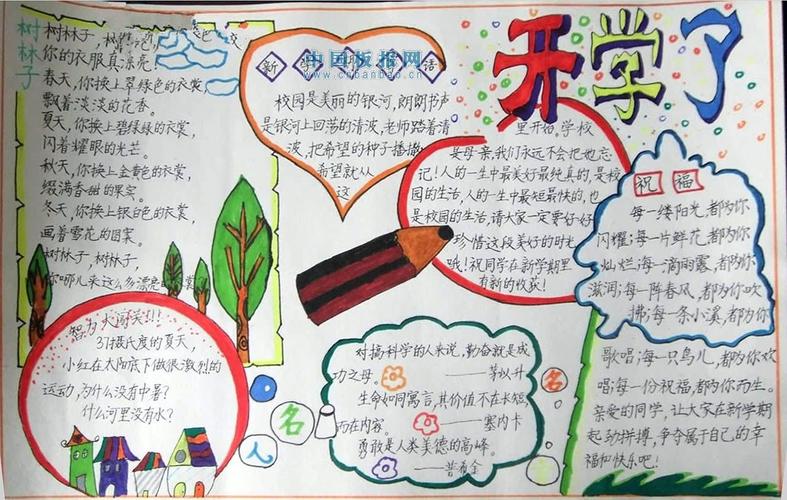 开学了
中国板报网
www.cnbanbao.cn
树林子
树林子,树林子,
你的衣服真漂亮
春天,你换上翠绿色的衣裳
飘着淡淡的花香。
夏天,你换上碧绿绿的衣裳
闪着耀眼的光芒。
秋天,你换上金黄色的衣裳,
缀满香甜的果实。
冬天,你换上银白色的衣裳,
画着雪花的图案。
树林子,树林子,
你哪儿来这么多漂亮的衣裳
新学期 语
校园是美丽的银河,朗朗书声
是银河上回荡的清波,老师踏着清
波,把希望的种子播撒
希望就从
这
里开始,学校
是母亲,我们永远不会把她忘
记!人的一生中最美好最纯真的,是校
园的生活,人的一生中最短最快的,也
是校园的生活,请大家一定要好好
珍惜这段美好的时光
哦!祝同学在新学期里
有新的收获!
祝福
每一缕阳光,都为你
闪耀;每一片鲜花,都为你
灿烂;每一滴雨露,都为你
滋润;每一阵春风,都为你吹
拂;每一条小溪,都为你
歌唱;每一只鸟儿,都为你欢
唱;每一份祝福,都为你而生。
亲爱的同学,让大家在新学期
起动拼搏,争夺属于自己的幸
福和快乐吧!
智力大闯关!!!
31摄氏度的夏天,
小红在太阳底下做很激烈的
运动,为什么没有中暑?
什么河里没有水?
名人名言
对搞科学的人来说,勤奋就是成
功之母。 ——茅以升
生命如同寓言,其价值不在长短,
而在内容。 ——塞内卡
勇敢是人类美德的高峰。
——普希金